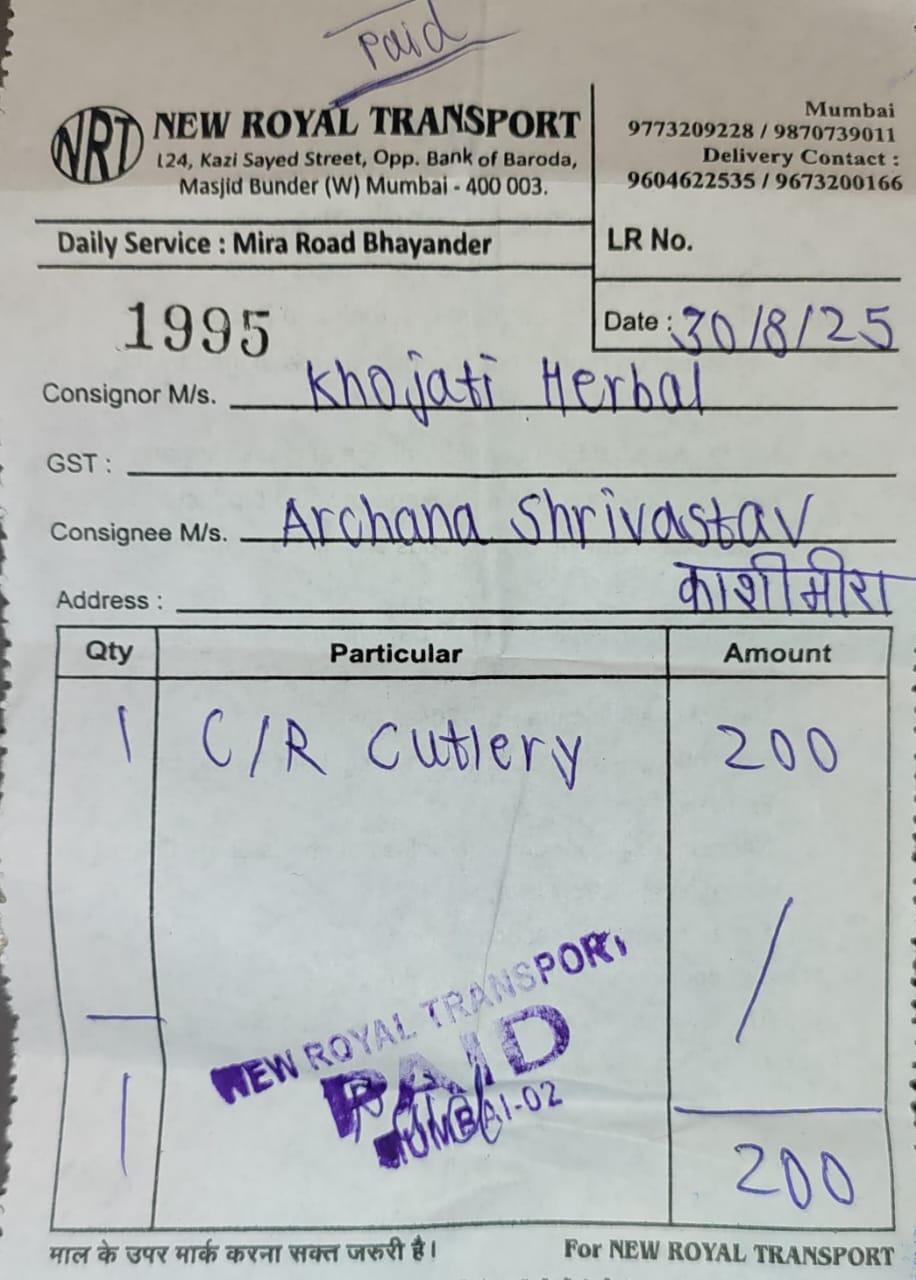 Paid
NRT NEW ROYAL TRANSPORT
124, Kazi Sayed Street, Opp. Bank of Baroda,
Masjid Bunder (W) Mumbai - 400 003.
Mumbai
9773209228 / 9870739011
Delivery Contact :
9604622535 / 9673200166
Daily Service : Mira Road Bhayander
LR No.
1995
Date : 30/8/25
Consignor M/s. Khojati Herbal
GST :
Consignee M/s. Archana Shrivastav
काशीमीरा
Address :
Qty Particular Amount
1 C/R Cutlery 200
NEW ROYAL TRANSPORT
PAID
MUMBAI-02
1 200
माल के उपर मार्क करना सक्त जरुरी है।
For NEW ROYAL TRANSPORT